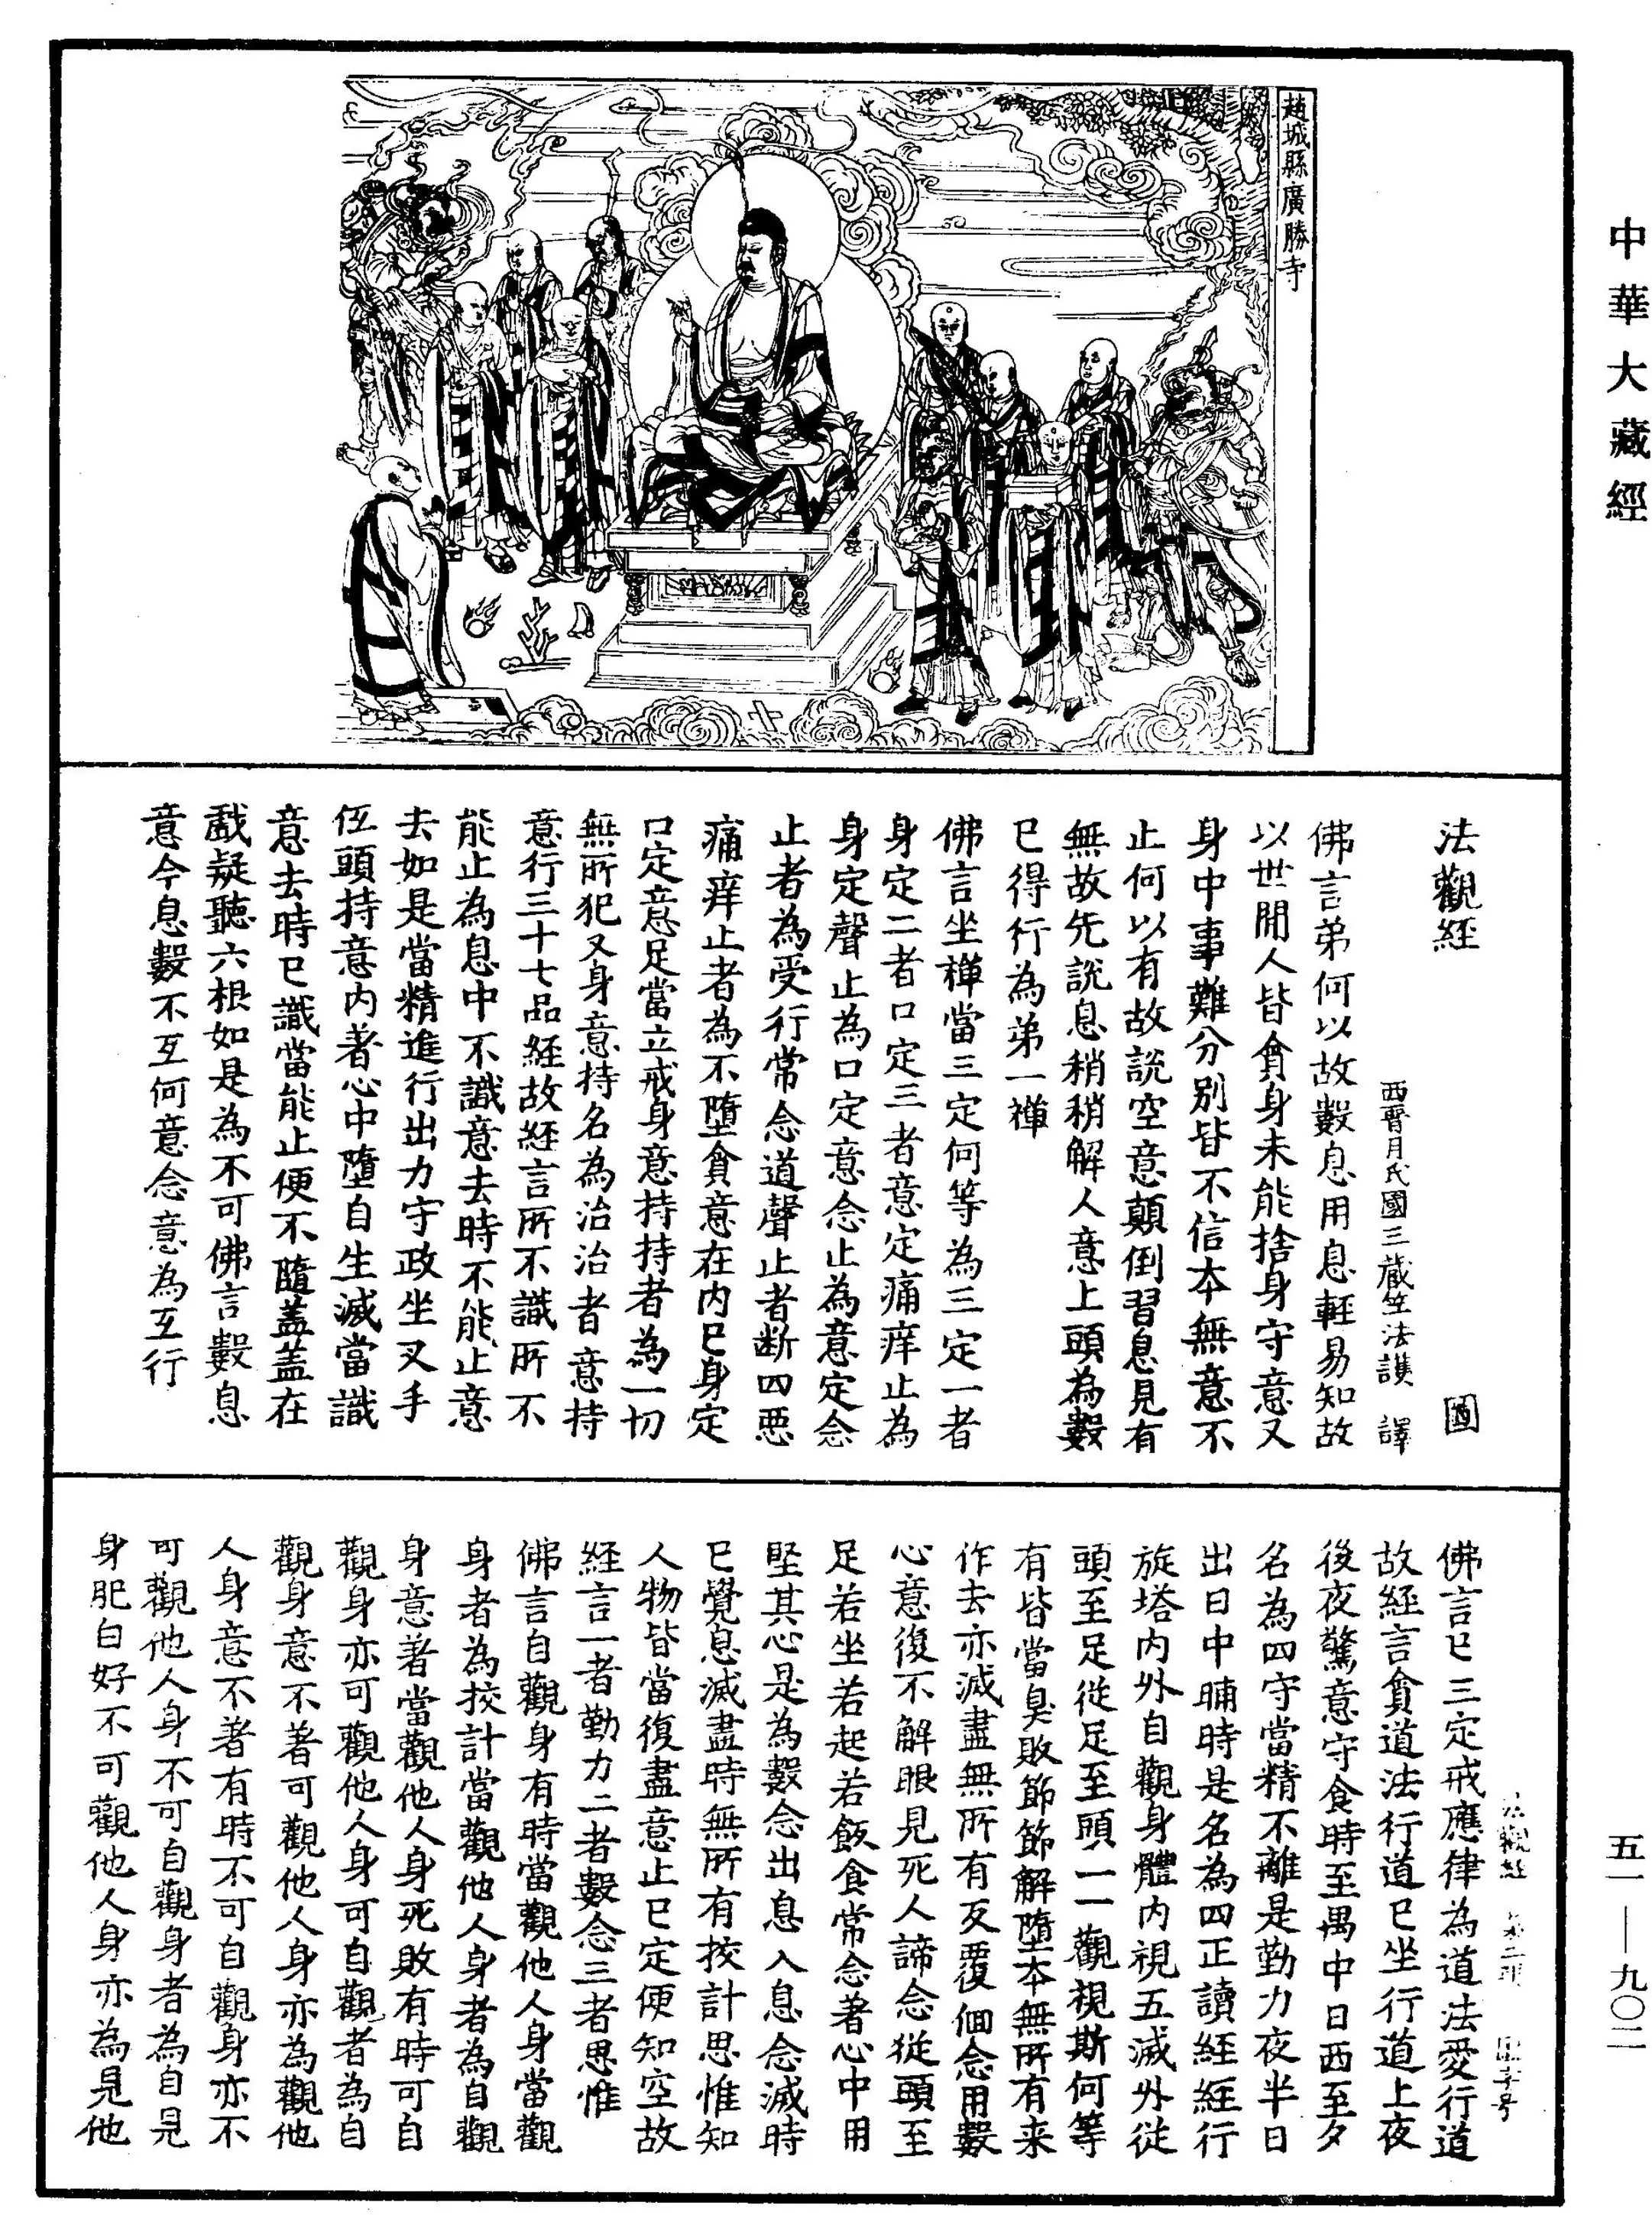 中華大藏經
趙城縣廣勝寺
法觀經
西晉月氏國三藏竺法護 譯
佛言弟何以故數息用息輕易知故
以世間人皆貪身未能捨身守意又
身中事難分別皆不信本無意不
止何以有故說空意顛倒習息見有
無故先說息稍稍解人意上頭為數
已得行為弟一禪
佛言坐禪當三定何等為三定一者
身定二者口定三者意定痛痒止為
身定聲止為口定意念止為意定念
止者為受行常念道聲止者断四惡
痛痒止者為不墮貪意在内已身定
口定意足當立戒身意持持者為一切
無所犯又身意持名為治治者意持
意行三十七品経故経言所不識所不
能止為息中不識意去時不能止意
去如是當精進行出力守政坐叉手
伍頭持意內著心中墮自生滅當識
意去時已識當能止便不隨盖盖在
戲疑聽六根如是為不可佛言數息
意今息數不互何意念意為互行
佛言已三定戒應律為道法愛行道
故経言貪道法行道已坐行道上夜
後夜驚意守食時至禺中日西至夕
名為四守當精不離是勤力夜半日
出日中晡時是名為四正讀経経行
旋塔内外自觀身體内視五滅外從
頭至足從足至頭一一觀視斯何等
有皆當臭敗節節解墮本無所有来
作去亦滅盡無所有反覆佪念用數
心意復不解眼見死人諦念從頭至
足若坐若起若飯食常念著心中用
堅其心是為數念出息入息念滅時
已覺息滅盡時無所有挍計思惟知
人物皆當復盡意止已定便知空故
経言一者勤力二者數念三者思惟
佛言自觀身有時當觀他人身當觀
身者為挍計當觀他人身者為自觀
身意著當觀他人身死敗有時可自
觀身亦可觀他人身可自觀者為自
觀身意不著可觀他人身亦為觀他
人身意不著有時不可自觀身亦不
可觀他人身不可自觀身者為自見
身肥白好不可觀他人身亦為見他
五一—九〇二